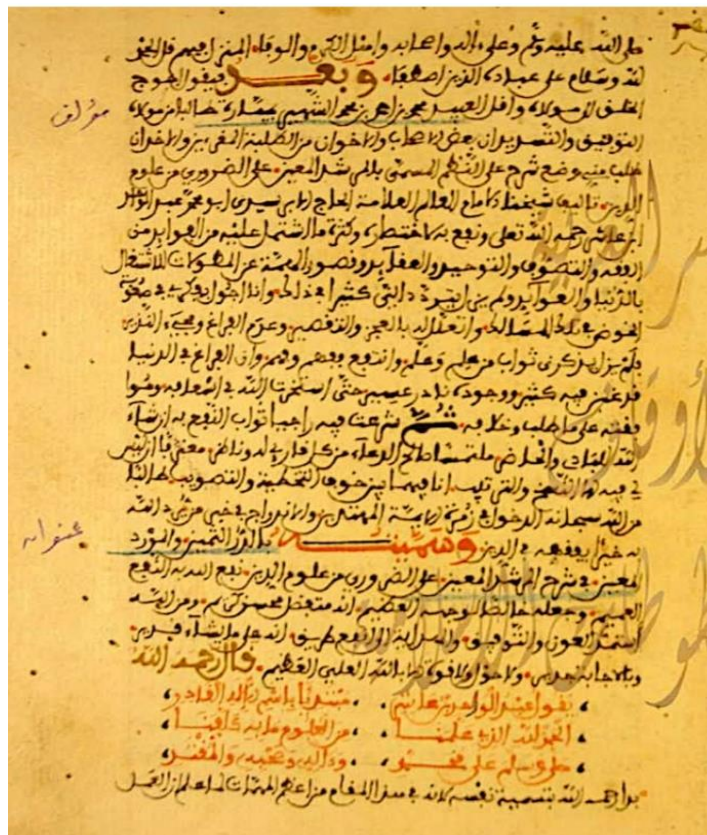 صلى الله عليه وسلم وعلى ءاله واصحابه وامثل الكرم والوفا المنزل فيهم قل الحمد
لله وسلام على عباده الذين اصطفى وبعد فيقول احوج
الخلق الى مولاه واقل العبيد محمد بن احمد بن محمد الشهير بميارة طالبا من مولاه
مؤلف
التوفيق والتسديد ان بعض الاصحاب والاخوان من الطلبة والاخدان
طلب مني وضع شرح على النظم المسمى بالمرشد المعين على الضروري من علوم
الدين تاليف شيخنا الامام العالم العلامة الحاج الابر سيدي ابو محمد عبد الواحد
ابن عاشر رحمه الله تعلى ونفع به لاختصاره وكثرة ما اشتمل عليه من الفوايد من
الفقه والتصوف والتوحيد والعقايد وقصور الهمة عن المطولات للاشتغال
بالدنيا والعوايد ولم يزل يتردد الي كثيرا في ذلك وانا اجول بفكري في صعوبة
الخوض في تلك المسالك واتعلل له بالعجز والتقصير وعدم الفراغ
فلم يزل يذكرني ثواب من علم وعلم وانتفع وفهم وفهم وان الفراغ في الدنيا
قد غبن فيه كثير ووجوده نادر عسير حتى استخرت الله في اسعافه وموا
فقته على ما طلب وخلافه ثم شرعت فيه راجيا ثواب النفع به ان شاء
الله للبادي والحاضر ملتمسا صالح الدعاء من كل قارئ له وناظر معترفا
انا فيهما بين خوفي التخطية والتصويب طالبا
من الله سبحانه الدخول في زمرة الايمة المهتدين والاندراج في خبر من يرد الله
به خيرا يفقهه في الدين وسميته بالدر الثمين والمورد
عنوانه
المعين في شرح المرشد المعين على الضروري من علوم الدين نفع الله به النفع
العميم وجعله خالصا لوجهه العظيم انه متفضل محسن كريم ومن الله
استمد العون والتوفيق والهداية الى انفع طريق انه على ما يشاء قدير
وبالاجابة جدير ولا حول ولا قوة الا بالله العلي العظيم قال رحمه الله
يقول عبد الواحد بن عاشر مبتديا باسم الاله القادر
الحمد لله الذي علمنا من العلوم ما به كلفنا
صلى وسلم على محمد وءاله وصحبه والمقتدي
بدا رحمه الله بتسمية نفسه لانه في هذا المقام من اعظم المهمات لما علم ان العمل